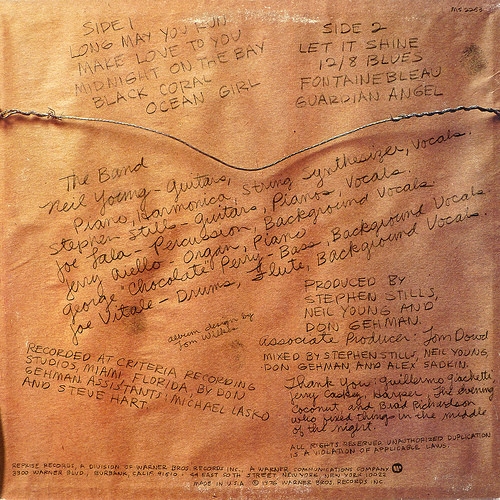 MS 2253
SIDE 1
LONG MAY YOU RUN
MAKE LOVE TO YOU
MIDNIGHT ON THE BAY
BLACK CORAL
OCEAN GIRL
SIDE 2
LET IT SHINE
12/8 BLUES
FONTAINEBLEAU
GUARDIAN ANGEL
The Band
Neil Young - Guitars,
Piano, Harmonica, String Synthesizer, Vocals.
Stephen Stills - Guitars, Pianos, Vocals.
Joe Lala - Percussion, Background Vocals
Jerry Aiello - Organ, Piano
George "Chocolate" Perry - Bass, Background Vocals
Joe Vitale - Drums, Flute, Background Vocals.
album design by
Tom Wilkes
PRODUCED BY
STEPHEN STILLS,
NEIL YOUNG AND
DON GEHMAN.
Associate Producer: Tom Dowd
MIXED BY STEPHEN STILLS, NEIL YOUNG,
DON GEHMAN AND ALEX SADKIN.
RECORDED AT CRITERIA RECORDING
STUDIOS, MIAMI FLORIDA, BY DON
GEHMAN ASSISTANTS: MICHAEL LASKO
AND STEVE HART.
Thank You: Guillermo Giachetti,
Jerry Harper, The evening
Coconut, and Brad Richardson
who fixed things in the middle
of the night.
ALL RIGHTS RESERVED UNAUTHORIZED DUPLICATION
IS A VIOLATION OF APPLICABLE LAWS.
REPRISE RECORDS, A DIVISION OF WARNER BROS. RECORDS INC., A WARNER COMMUNICATIONS COMPANY
3300 WARNER BLVD., BURBANK, CALIF. 91510 · 44 EAST 50TH STREET, NEW YORK, NEW YORK 10022
MADE IN U.S.A. © 1976 WARNER BROS. RECORDS INC.